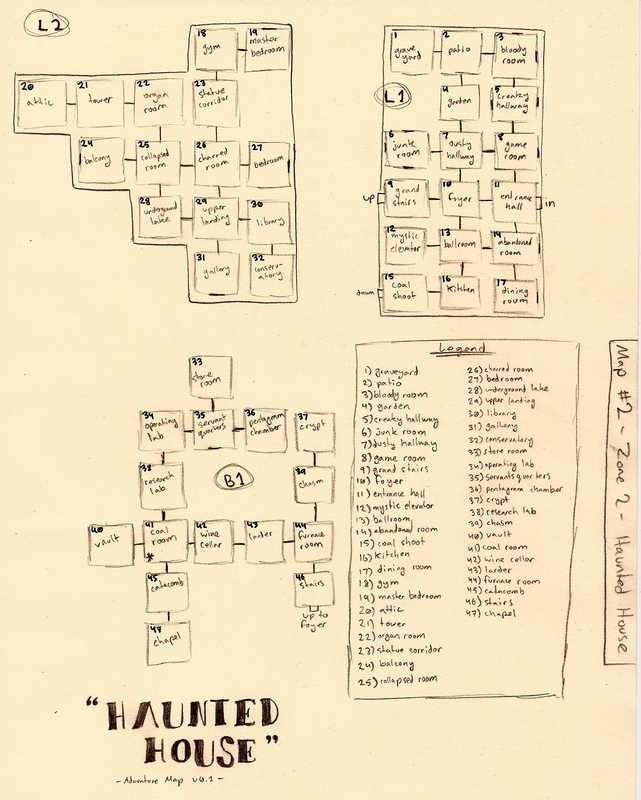 L2
18
gym
19
master
bedroom
20
attic
21
tower
22
organ
room
23
statue
corridor
24
balcony
25
collapsed
room
26
charred
room
27
bedroom
28
underground
lake
29
upper
landing
30
library
31
gallery
32
conserv-
atory
L1
1
grave
yard
2
patio
3
bloody
room
4
garden
5
creaky
hallway
6
junk
room
7
dusty
hallway
8
game
room
up
9
grand
stairs
10
foyer
11
entrance
hall
in
12
mystic
elevator
13
ballroom
14
abandoned
room
down
15
coal
shoot
16
Kitchen
17
dining
room
B1
33
store
room
34
operating
lab
35
servant
quarters
36
pentagram
chamber
37
crypt
38
research
lab
39
chasm
40
vault
41
coal
room
*
42
wine
cellar
43
larder
44
furnace
room
45
catacomb
46
stairs
up to
foyer
47
chapel
Legend
1) graveyard
2) patio
3) bloody room
4) garden
5) creaky hallway
6) junk room
7) dusty hallway
8) game room
9) grand stairs
10) foyer
11) entrance hall
12) mystic elevator
13) ballroom
14) abandoned room
15) coal shoot
16) Kitchen
17) dining room
18) gym
19) master bedroom
20) attic
21) tower
22) organ room
23) statue corridor
24) balcony
25) collapsed room
26) charred room
27) bedroom
28) underground lake
29) upper landing
30) library
31) gallery
32) conservatory
33) store room
34) operating lab
35) servants quarters
36) pentagram chamber
37) crypt
38) research lab
39) chasm
40) vault
41) coal room
42) wine cellar
43) larder
44) furnace room
45) catacomb
46) stairs
47) chapel
Map #2 - Zone 2 - Haunted House
"HAUNTED
HOUSE"
- Adventure Map v0.1 -